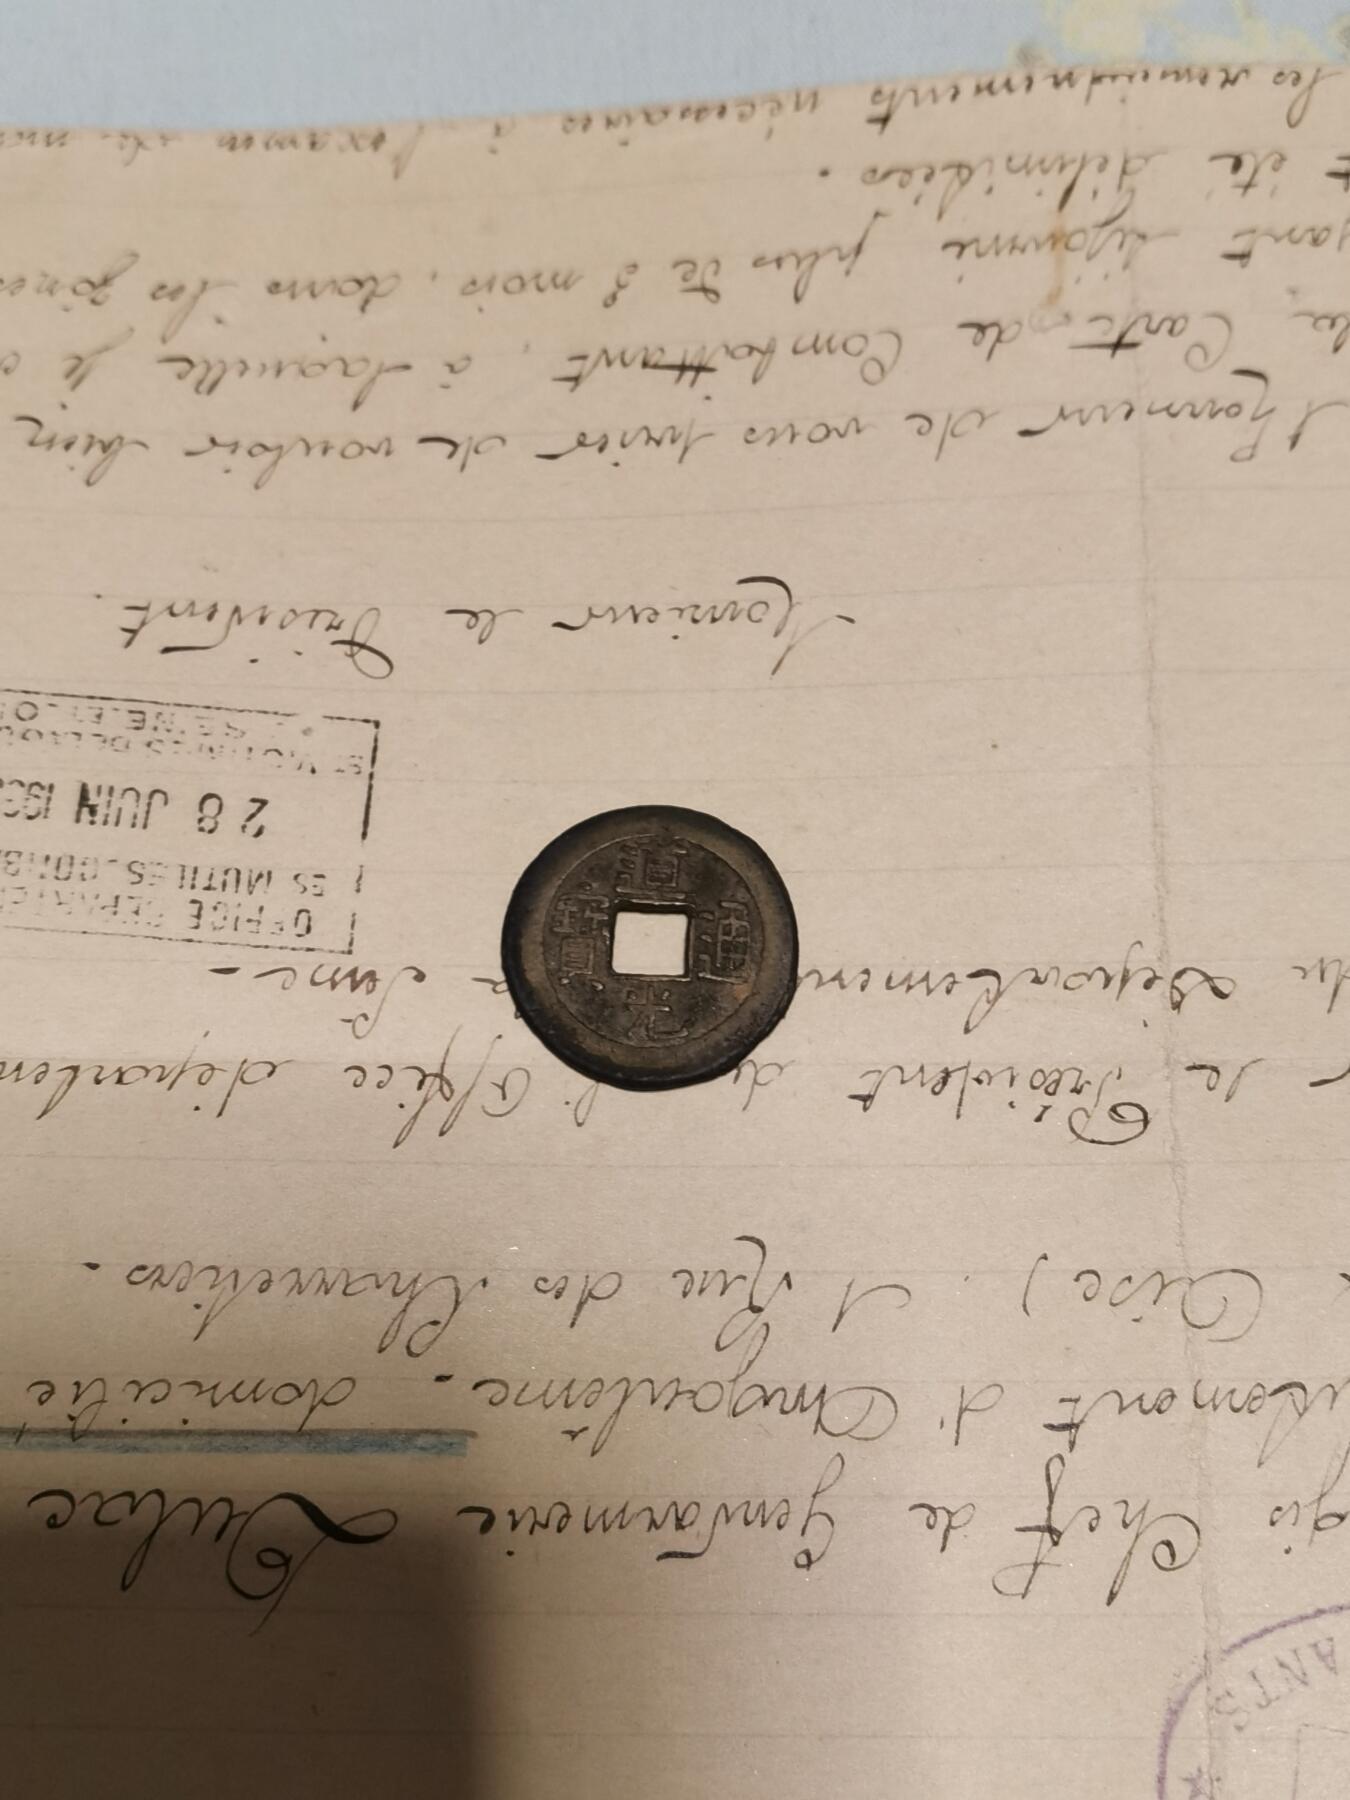 ANTS
gis Chef de Gendarmerie
d'Angoulême. domicilié
Oise). 1 Rue des Charretiers.
le Président de l'Office départem
du Départemen Seine -
OFFICE DEPARTE
ES MUTILES-COMBA
28 JUIN 193
ET VICTIMES DE LA GU
SEINE-ET-O
道光通寶
Monsieur le Président.
l'honneur de vous prier de vouloir bien
la Carte de Combattant, à laquelle je
yant séjourné plus de 3 mois, dans les zones
t été délimitées.
les renseignements nécessaires à l'examen de ma